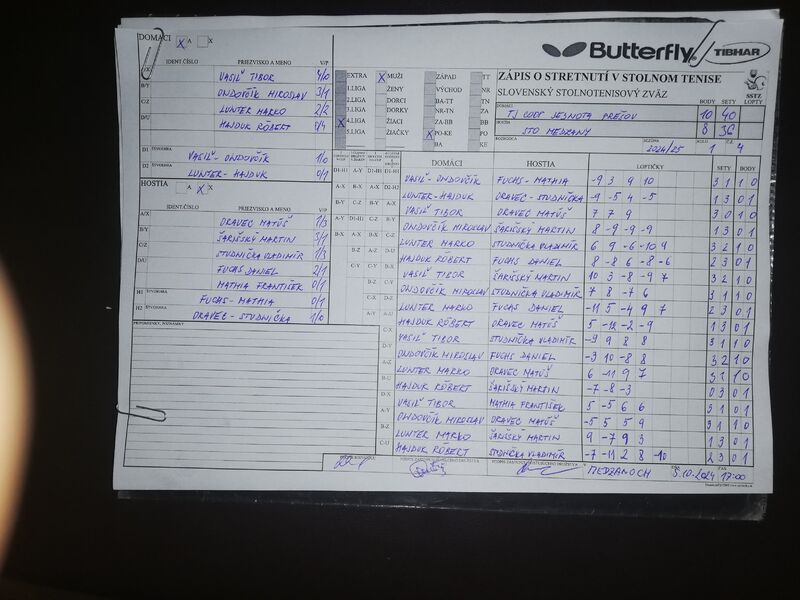 DOMÁCI A X X
Butterfly TIBHAR
IDENT.ČÍSLO PRIEZVISKO A MENO V/P
A/X VASIĽ TIBOR 4/0
B/Y ONDOVČÍK MIROSLAV 3/1
C/Z LUNTER MARKO 2/2
D/U HAJDUK RÓBERT 0/4
EXTRA X MUŽI ZÁPAD TT
1.LIGA ŽENY VÝCHOD NR
2.LIGA DORCI BA-TT TN
3.LIGA DORKY NR-TN ZA
X 4.LIGA ŽIACI ZA-BB BB
5.LIGA ŽIAČKY PO-KE PO
BA KE
ZÁPIS O STRETNUTÍ V STOLNOM TENISE
SLOVENSKÝ STOLNOTENISOVÝ ZVÄZ
SSTZ
BODY SETY LOPTY
DOMÁCI TJ COOP JEDNOTA PREŠOV 10 40
HOSTIA STO MEDZANY 8 36
ROZHODCA
SEZÓNA 2024/25 KOLO 1 4
D1 ŠTVORHRA VASIĽ - ONDOVČÍK 1/0
D2 LUNTER - HAJDUK 0/1
HOSTIA A X X
IDENT.ČÍSLO PRIEZVISKO A MENO V/P
A/X ORAVEC MATÚŠ 1/3
B/Y ŠARIŠSKÝ MARTIN 3/1
C/Z STUDNIČKA VLADIMÍR 1/3
D/U FUCHS DANIEL 2/1
MATHIA FRANTIŠEK 0/1
H1 ŠTVORHRA FUCHS - MATHIA 0/1
H2 ŠTVORHRA ORAVEC - STUDNIČKA 1/0
PRIPOMIENKY, NÁMIETKY
DOMÁCI HOSTIA LOPTIČKY SETY BODY
VASIĽ - ONDOVČÍK FUCHS - MATHIA -9 3 9 10 3 1 1 0
LUNTER - HAJDUK ORAVEC - STUDNIČKA -9 -5 4 -5 1 3 0 1
VASIĽ TIBOR ORAVEC MATÚŠ 7 7 9 3 0 1 0
ONDOVČÍK MIROSLAV ŠARIŠSKÝ MARTIN 8 -9 -9 -9 1 3 0 1
LUNTER MARKO STUDNIČKA VLADIMÍR 6 9 -6 -10 9 3 2 1 0
HAJDUK RÓBERT FUCHS DANIEL 8 -8 6 -8 -6 2 3 0 1
VASIĽ TIBOR ŠARIŠSKÝ MARTIN 10 3 -8 -9 7 3 2 1 0
ONDOVČÍK MIROSLAV STUDNIČKA VLADIMÍR 7 8 -7 6 3 1 1 0
LUNTER MARKO FUCHS DANIEL -11 5 -4 9 7 2 3 0 1
HAJDUK RÓBERT ORAVEC MATÚŠ 5 -12 -2 -9 1 3 0 1
VASIĽ TIBOR STUDNIČKA VLADIMÍR -9 9 8 8 3 1 1 0
ONDOVČÍK MIROSLAV FUCHS DANIEL -3 10 -8 8 3 2 1 0
LUNTER MARKO ORAVEC MATÚŠ 6 -11 9 7 3 1 1 0
HAJDUK RÓBERT ŠARIŠSKÝ MARTIN -7 -8 -3 0 3 0 1
VASIĽ TIBOR MATHIA FRANTIŠEK 5 -5 6 6 3 1 0 1
ONDOVČÍK MIROSLAV ORAVEC MATÚŠ -5 5 5 9 3 1 1 0
LUNTER MARKO ŠARIŠSKÝ MARTIN 9 -7 9 3 1 3 0 1
HAJDUK RÓBERT STUDNIČKA VLADIMÍR -7 -11 2 8 -10 2 3 0 1
5.10.2024 17:00